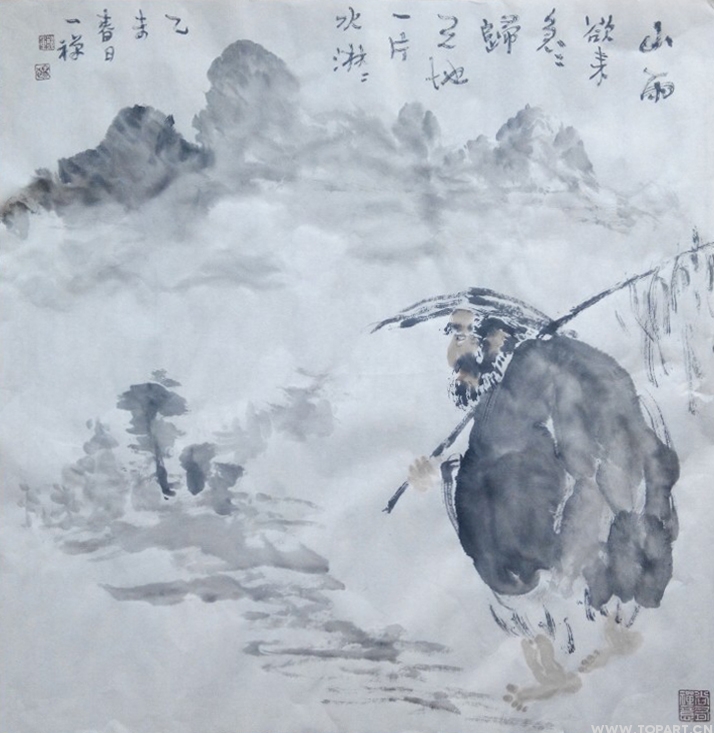 山雨
欲来
急〻
歸
天地
一片
水淋〻
乙
未
春日
一禅
WWW.TOPART.CN